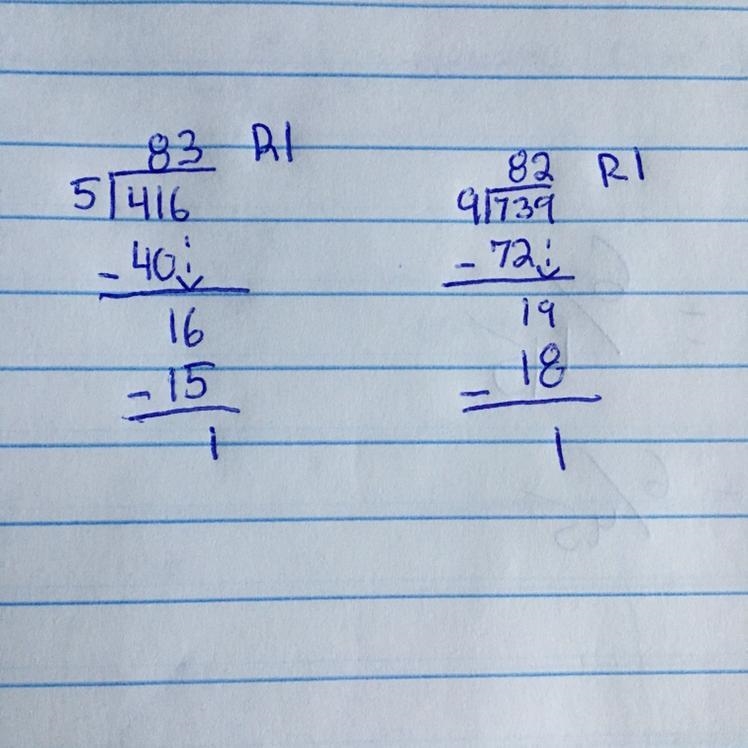 83 R1
5)416
- 40
16
- 15
1
82 R1
9)739
- 72
19
- 18
1